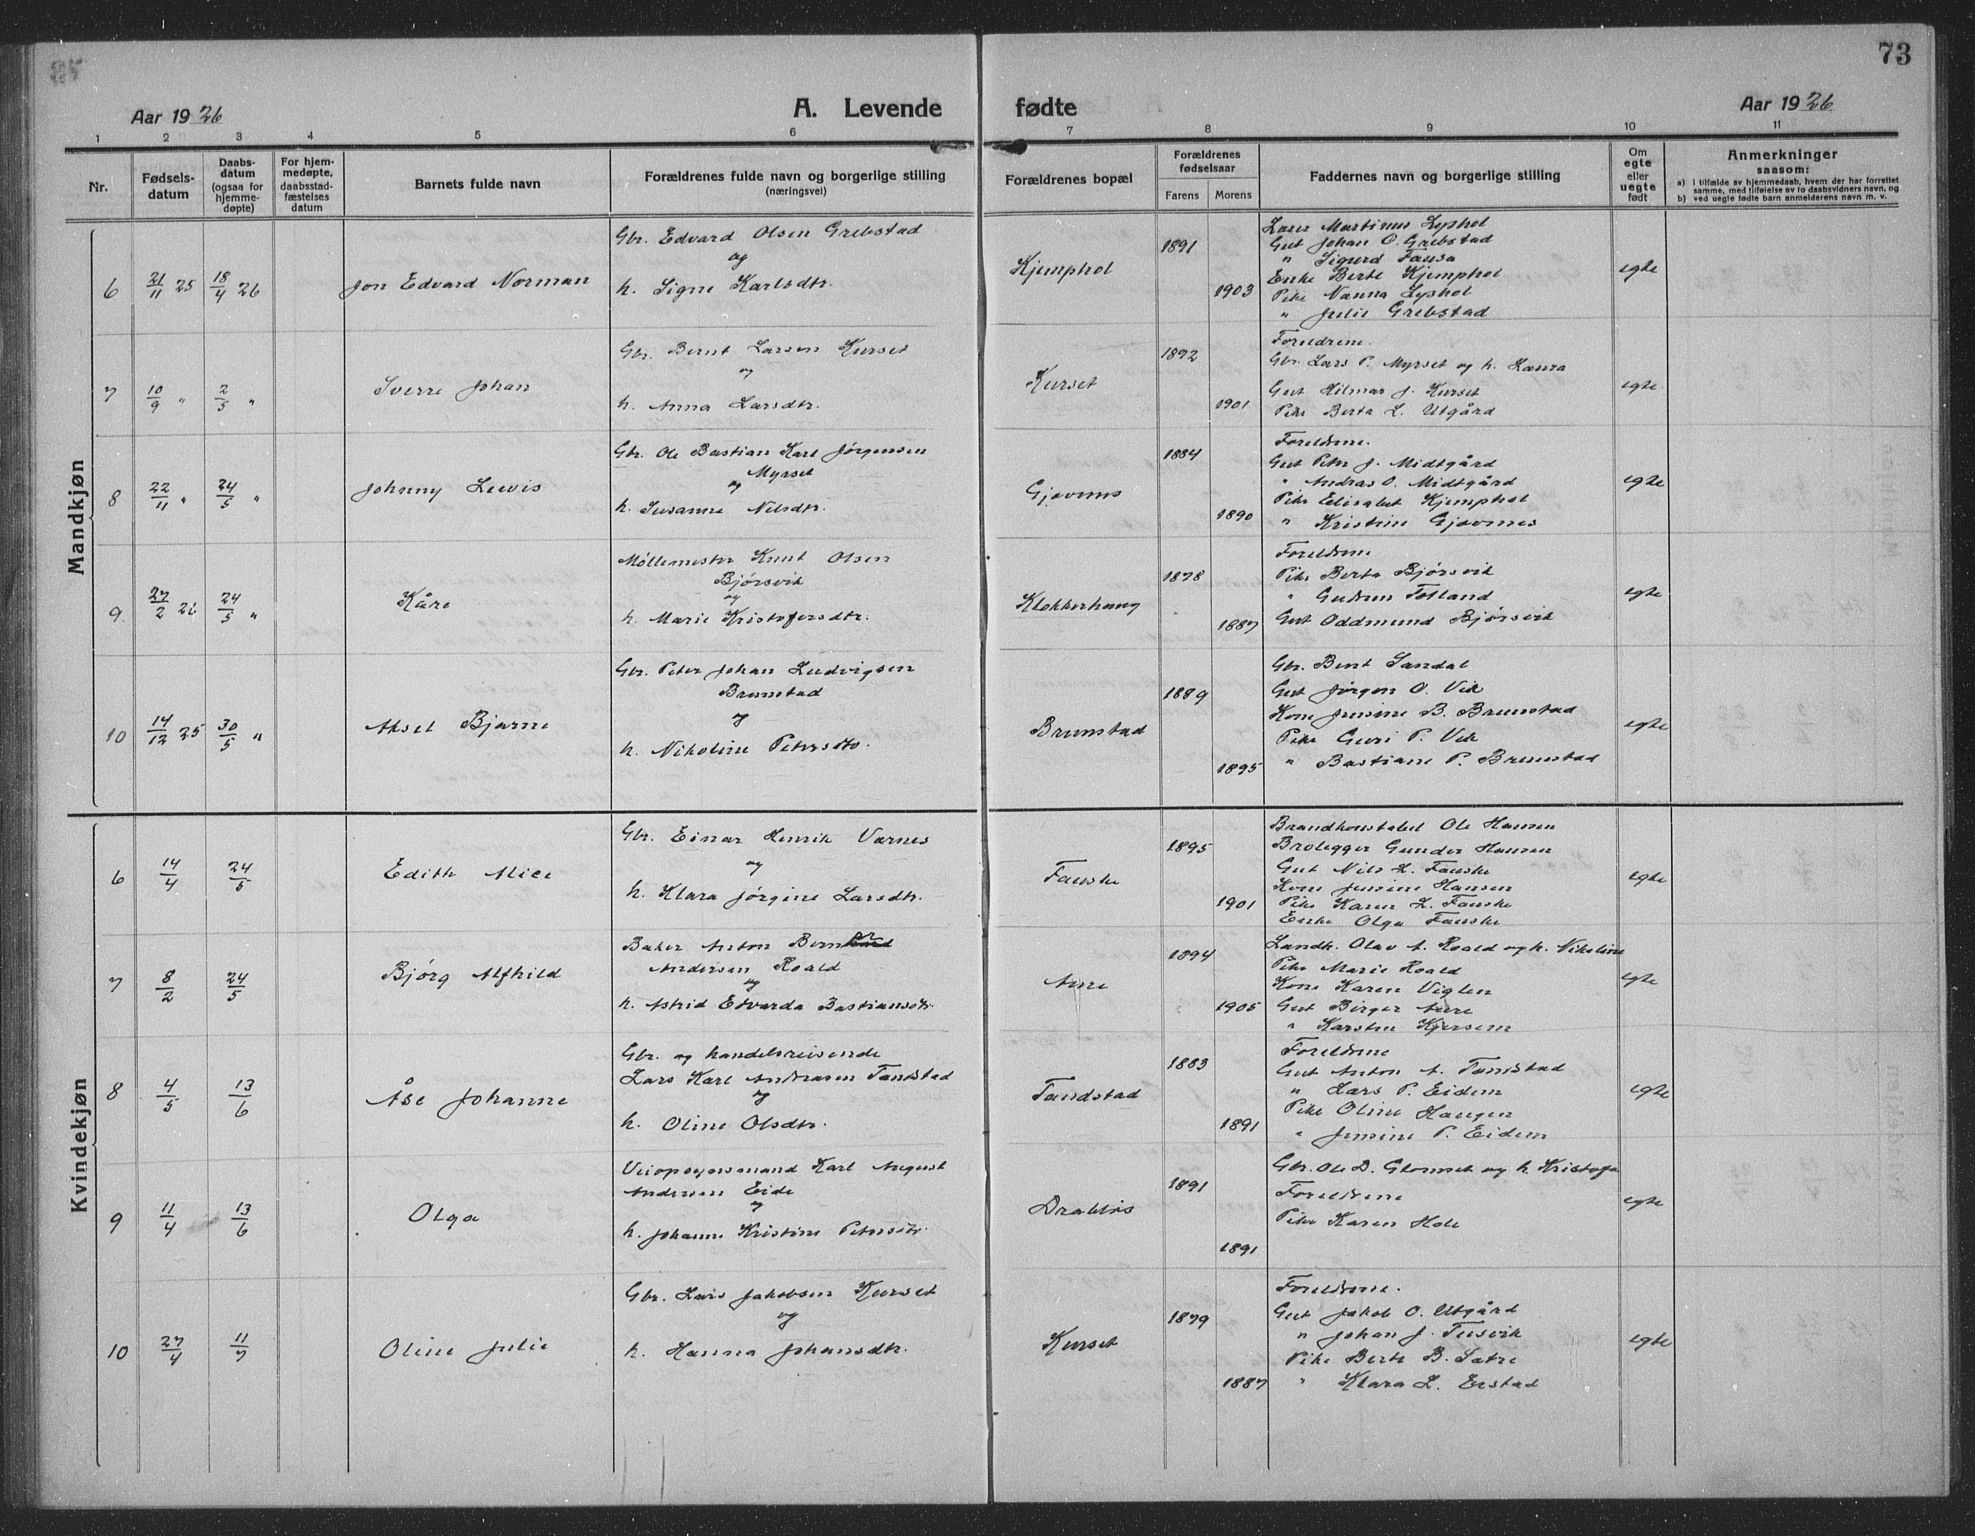 73
Aar 1926
A. Levende
fødte
Aar 1926
1 2 3 4 5 6 7 8 9 10 11
Nr.
Fødsels-
datum
Daabs-
datum
(ogsaa for
hjemme-
døpte)
For hjem-
medøpte,
daabsstad-
fæstelses
datum
Barnets fulde navn
Forældrenes fulde navn og borgerlige stilling
(næringsvei)
Forældrenes bopæl
Forældrenes
fødselsaar
Farens Morens
Faddernes navn og borgerlige stilling
Om
egte
eller
uegte
født
Anmerkninger
saasom:
a) i tilfælde av hjemmedaab, hvem der har forrettet
samme, med tilføielse av to daabsvidners navn, og
b) ved uegte fødte barn anmelderens navn m. v.
Mandkjøn
6 21/11 25 18/4 26 Jon Edvard Norman
Gbr. Edvard Olsen Grebstad
og
h. Signe Karlsdtr.
Kjemphol
1891
1903
Lærer Martinus Lyshol
Gut Johan O. Grebstad
" Sigurd Fausa
Enke Berte Kjemphol
Pike Nanna Lyshol
" Julie Grebstad
egte
7 10/9 " 2/5 " Sverre Johan
Gbr. Bernt Larsen Kurset
og
h. Anna Larsdtr.
Kurset
1872
1901
Foreldrene.
Gbr. Lars P. Myrset og h. Laura
Gut Hilmar J. Kurset
Pike Berta L. Utgård
egte
8 22/11 " 24/5 " Johnny Lewis
Gbr. Ole Bastian Karl Jørgensen
Myrset
og
h. Susanne Nilsdtr.
Gjøvenes
1884
1890
Foreldrene.
Gut Peter J. Midtgård
" Andras O. Midtgård
Pike Elisabet Kjemphol
" Kristine Gjøvenes
egte
9 27/2 26 24/5 " Kåre
Møllemester Knut Olsen
Bjørsvik
og
h. Marie Kristofersdtr.
Klokkerhaug
1878
1887
Foreldrene
Pike Berta Bjørsvik
" Gudrun Totland
Gut Oddmund Bjørsvik
egte
10 14/12 25 30/5 " Aksel Bjarne
Gbr. Peter Johan Ludvigsen
Brunstad
og
h. Nikoline Petersdtr.
Brunstad
1889
1895
Gbr. Bernt Sandal
Gut Jørgen O. Vik
Kone Jensine B. Brunstad
Pike Guri P. Vik
" Bastiane P. Brunstad
egte
Kvindekjøn
6 14/4 24/5 Edith Alice
Gbr. Einar Henrik Varnes
og
h. Klara Jørgine Larsdtr.
Fauske
1895
1901
Brandkonstabel Ole Hansen
Brolegger Gunder Hansen
Gut Nils L. Fauske
Kone Jensine Hansen
Pike Karen L. Fauske
Enke Olga Fauske
egte
7 8/2 24/5 Bjørg Alfhild
Baker Anton
Andersen Roald
og
h. Astrid Edvarda Bastiansdtr.
Aure
1894
1905
Landh. Olav A. Roald og h. Nikoline
Pike Marie Roald
Kone Karen Viglen
Gut Birger Aure
" Karsten Kjersem
egte
8 4/5 13/6 Åse Johanne
Gbr. og handelsreisende
Lars Karl Andreasen Tandstad
og
h. Oline Olsdtr.
Tandstad
1883
1891
Foreldrene
Gut Anton A. Tandstad
" Lars P. Eidem
Pike Oline Haugen
" Jensine P. Eidem
egte
9 11/4 13/6 Olga
Veiopsynsmand Karl August
Andersen Eide
og
h. Johanne Kristine Petersdtr.
Drabløs
1891
1891
Gbr. Ole D. Glomset og h. Kristofa
Foreldrene
Pike Karen Hole
egte
10 27/4 11/7 Oline Julie
Gbr. Lars Jakobsen Kurset
og
h. Hanna Johansdtr.
Kurset
1879
1887
Foreldrene.
Gut Jakob O. Utgård
" Johan J. Tusvik
Pike Berte B. Sætre
" Klara L. Erstad
egte